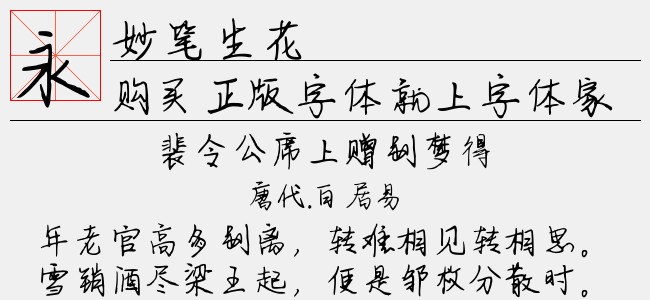 永
妙笔生花
购买正版字体就上字体家
裴令公席上赠别梦得
唐代.白居易
年老官高多别离，转难相见转相思。
雪销酒尽梁王起，便是邹枚分散时。